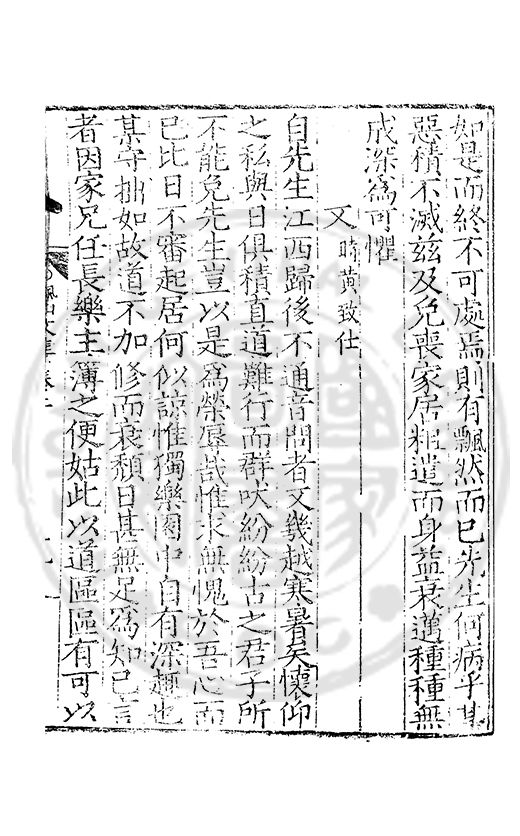 如是而終不可處焉則有飄然而已先生何病乎某
惡積不滅茲及免喪家居粗遣而身益衰邁種種無
成深爲可懼
又時黃致仕
自先生江西歸後不通音問者又幾越寒暑矣懷仰
之私與日俱積直道難行而群吠紛紛古之君子所
不能免先生豈以是爲榮辱哉惟求無愧於吾心而
已比日不審起居何似諒惟獨樂園中自有深趣也
某守拙如故道不加修而衰頹日甚無足爲知已言
者因家兄任長樂主簿之便姑此以道區區有可以